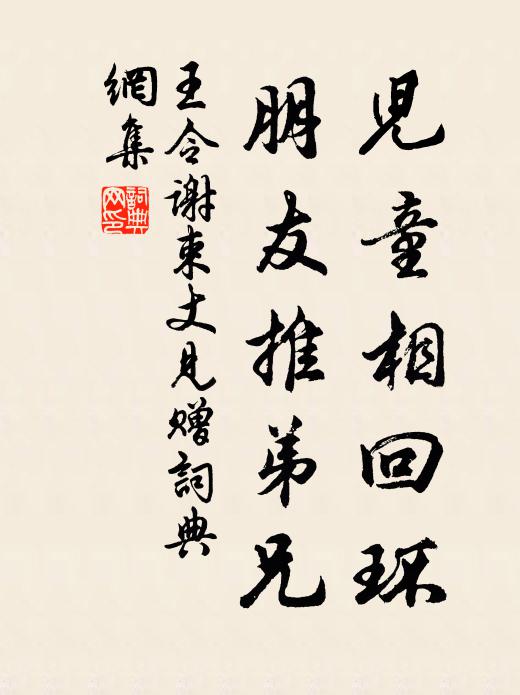 兒童相回环
朋友推弟兄
王令謝束丈見贈詞典
網集
詞典
网印